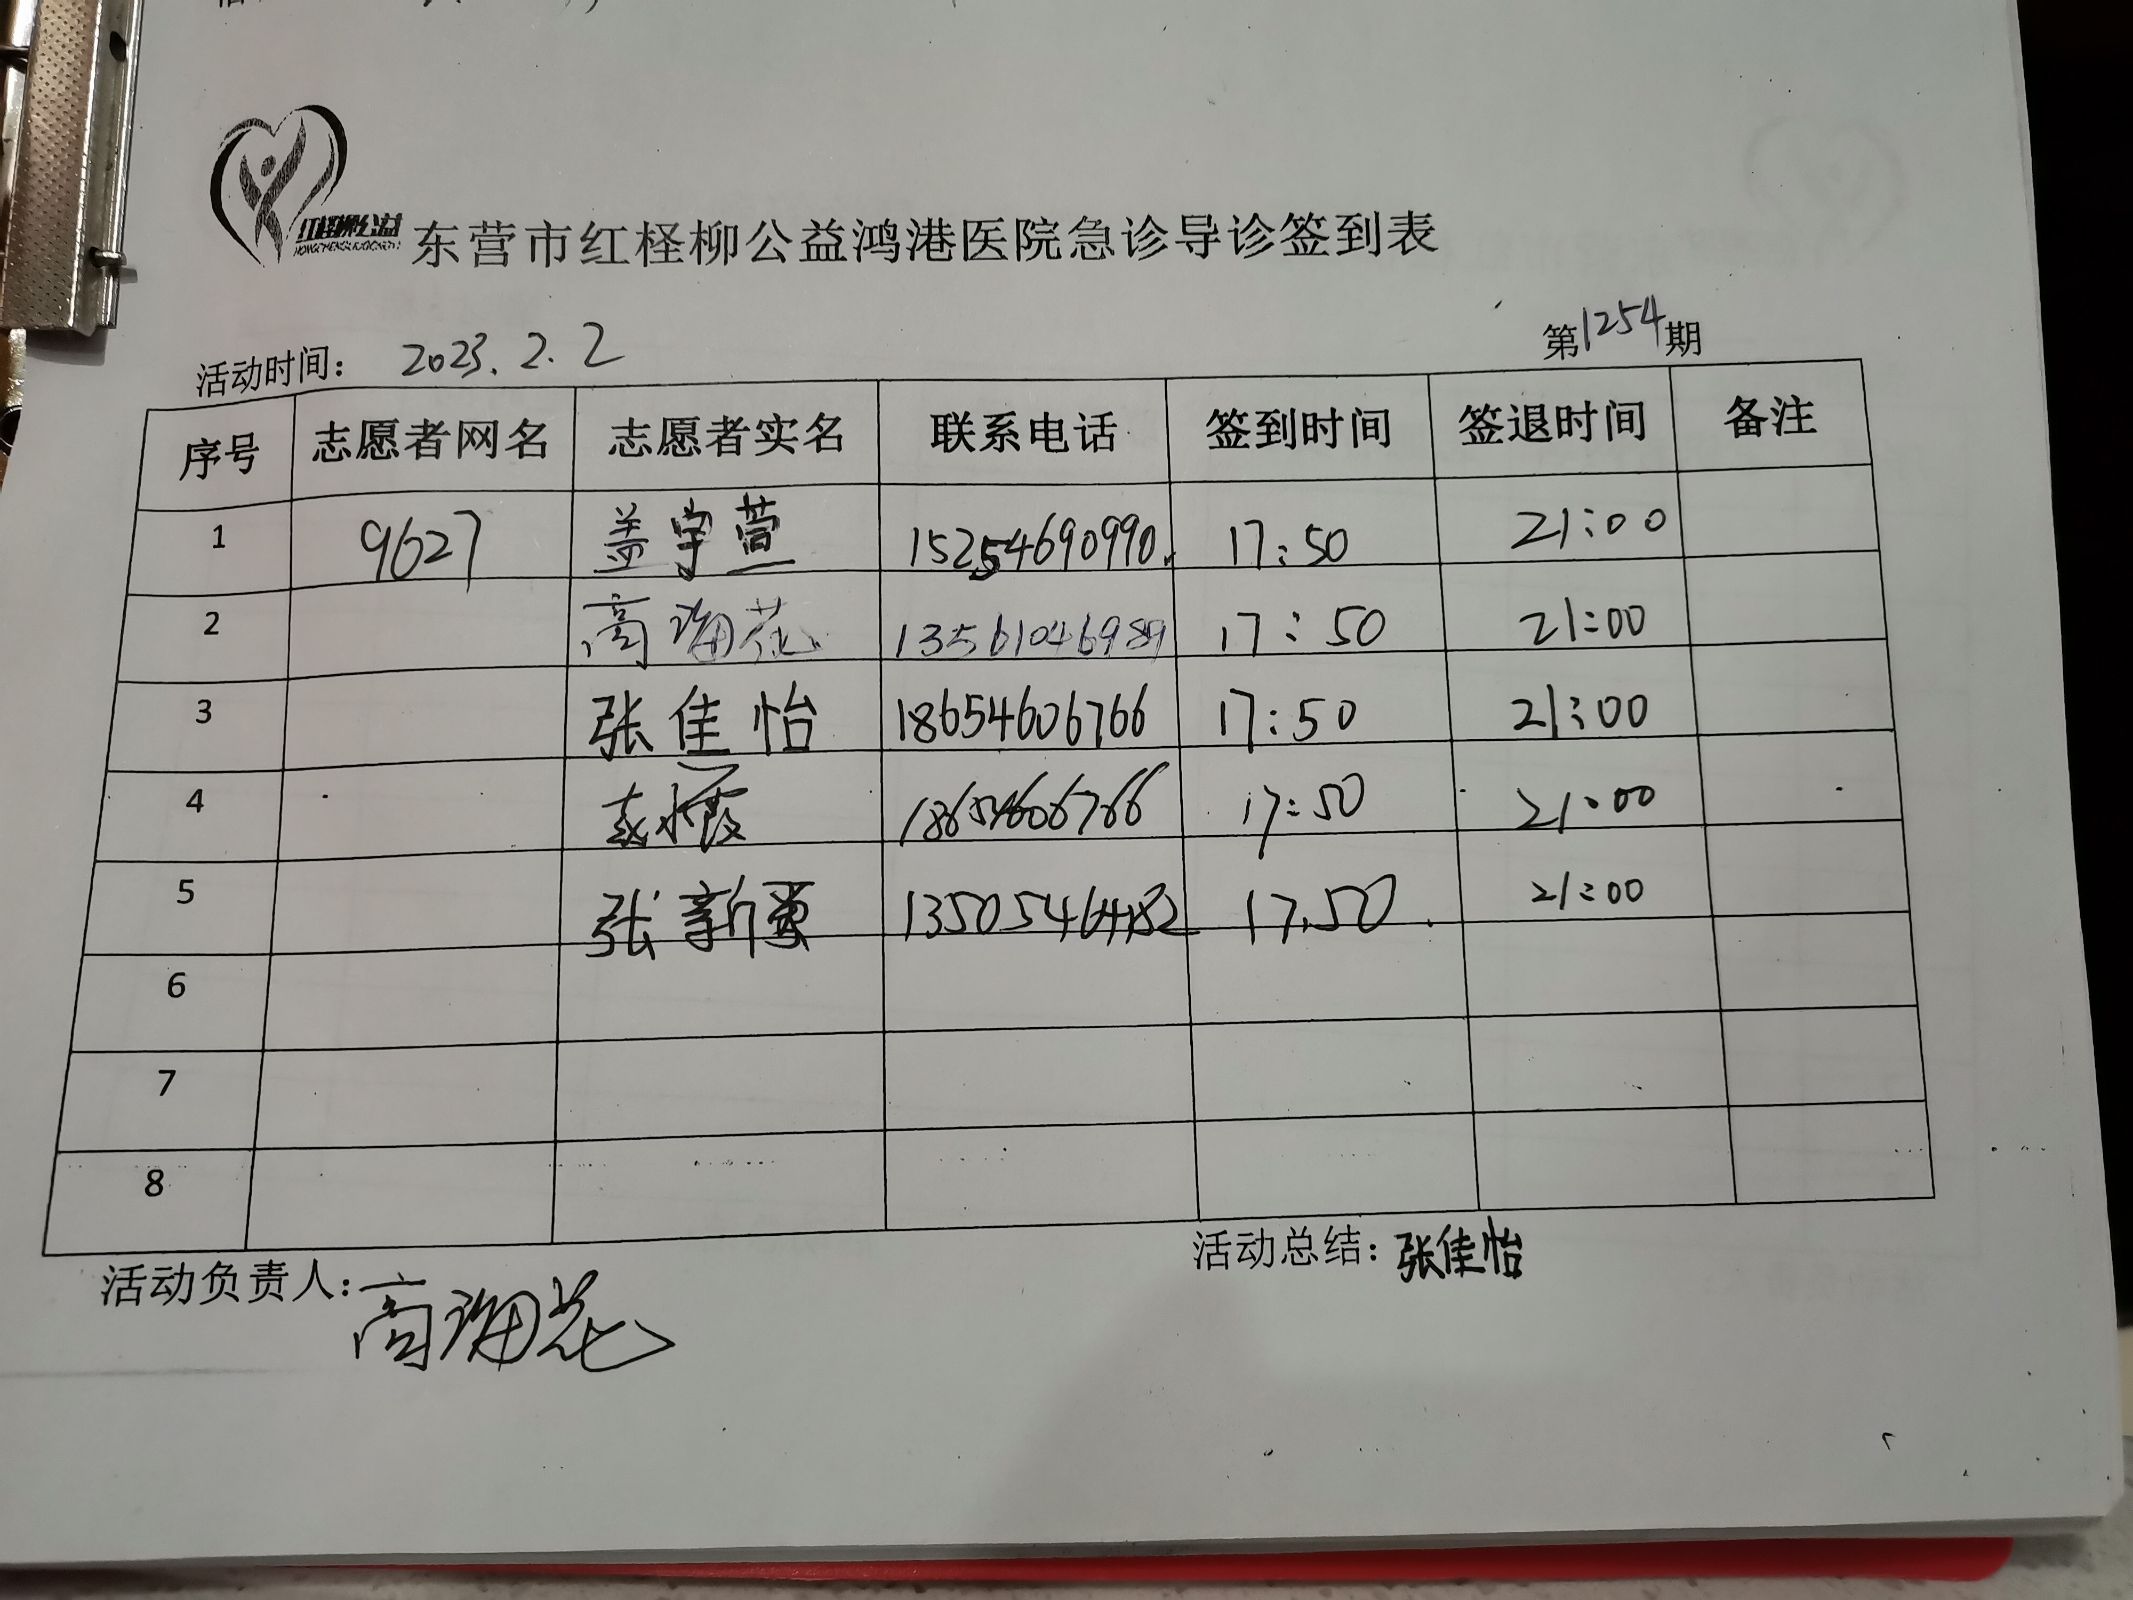 红柽柳公益
东营市红柽柳公益鸿港医院急诊导诊签到表
活动时间： 2023.2.2 第1254期
序号 志愿者网名 志愿者实名 联系电话 签到时间 签退时间 备注
1 9627 盖宇萱 15254690990 17:50 21:00
2 高海花 13561046989 17:50 21:00
3 张佳怡 18654606766 17:50 21:00
4 18654606766 17:50 21:00
5 张新 17.50 21:00
6
7
8
活动总结：张佳怡
活动负责人：高海花